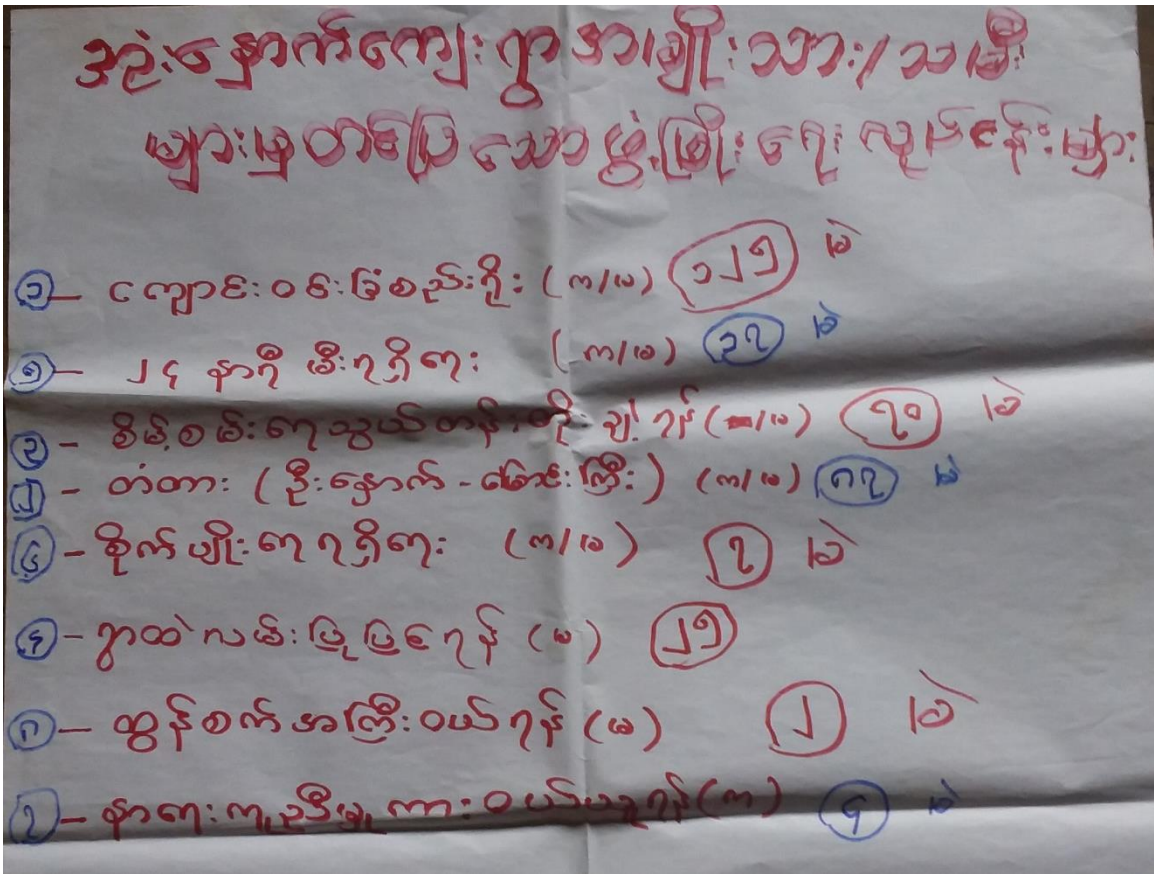 ဥဦးနှောက်ကျေးရွာအမျိုးသား/သမီး
များမှတင်ပြသောဖွံ့ဖြိုးရေးလုပ်ငန်းများ
၁ - ကျောင်းဝင်းခြံစည်းရိုး (က/မ) ၁၂၅ မဲ
၅ - ၂၄ နာရီ မီးရရှိရေး (က/မ) ၃၇ မဲ
၃ - စိမ့်စမ်းရေသွယ်တန်းတိုးချဲ့ရန် (က/မ) ၇၀ မဲ
၂ - တံတား (ဦးနှောက် - ကြီး) (က/မ) ၈၇ မဲ
၆ - စိုက်ပျိုးရေရရှိရေး (က/မ) ၇ မဲ
၄ - ရွာထဲလမ်းပြုပြင်ရန် (မ) ၂၅
၈ - ထွန်စက်အကြီးဝယ်ရန် (မ) ၂ မဲ
၇ - နာရေးကူညီမှုကားဝယ်ယူရန် (က) ၄ မဲ